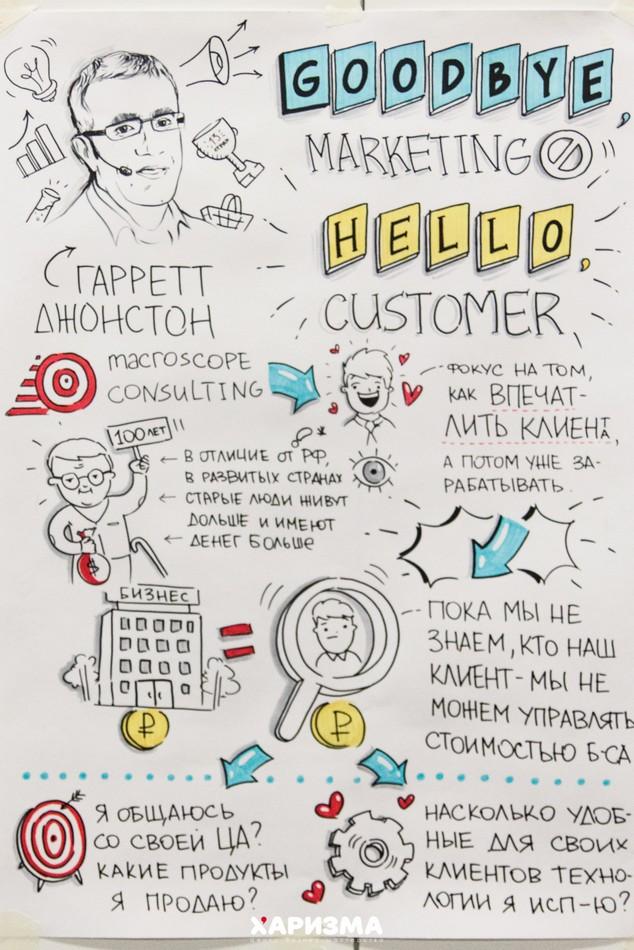 GOODBYE,
MARKETING
HELLO,
CUSTOMER
ГАРРЕТТ
ДЖОНСТОН
MACROSCOPE
CONSULTING
ФОКУС НА ТОМ,
КАК ВПЕЧАТ-
ЛИТЬ КЛИЕНТА,
А ПОТОМ УЖЕ ЗА-
РАБАТЫВАТЬ.
100 ЛЕТ
В ОТЛИЧИЕ ОТ РФ,
В РАЗВИТЫХ СТРАНАХ
СТАРЫЕ ЛЮДИ ЖИВУТ
ДОЛЬШЕ И ИМЕЮТ
ДЕНЕГ БОЛЬШЕ
$
БИЗНЕС
₽
₽
ПОКА МЫ НЕ
ЗНАЕМ, КТО НАШ
КЛИЕНТ - МЫ НЕ
МОЖЕМ УПРАВЛЯТЬ
СТОИМОСТЬЮ Б-СА
Я ОБЩАЮСЬ
СО СВОЕЙ ЦА?
КАКИЕ ПРОДУКТЫ
Я ПРОДАЮ?
НАСКОЛЬКО УДОБ-
НЫЕ ДЛЯ СВОИХ
КЛИЕНТОВ ТЕХНО-
ЛОГИИ Я ИСП-Ю?
ХАРИЗМА